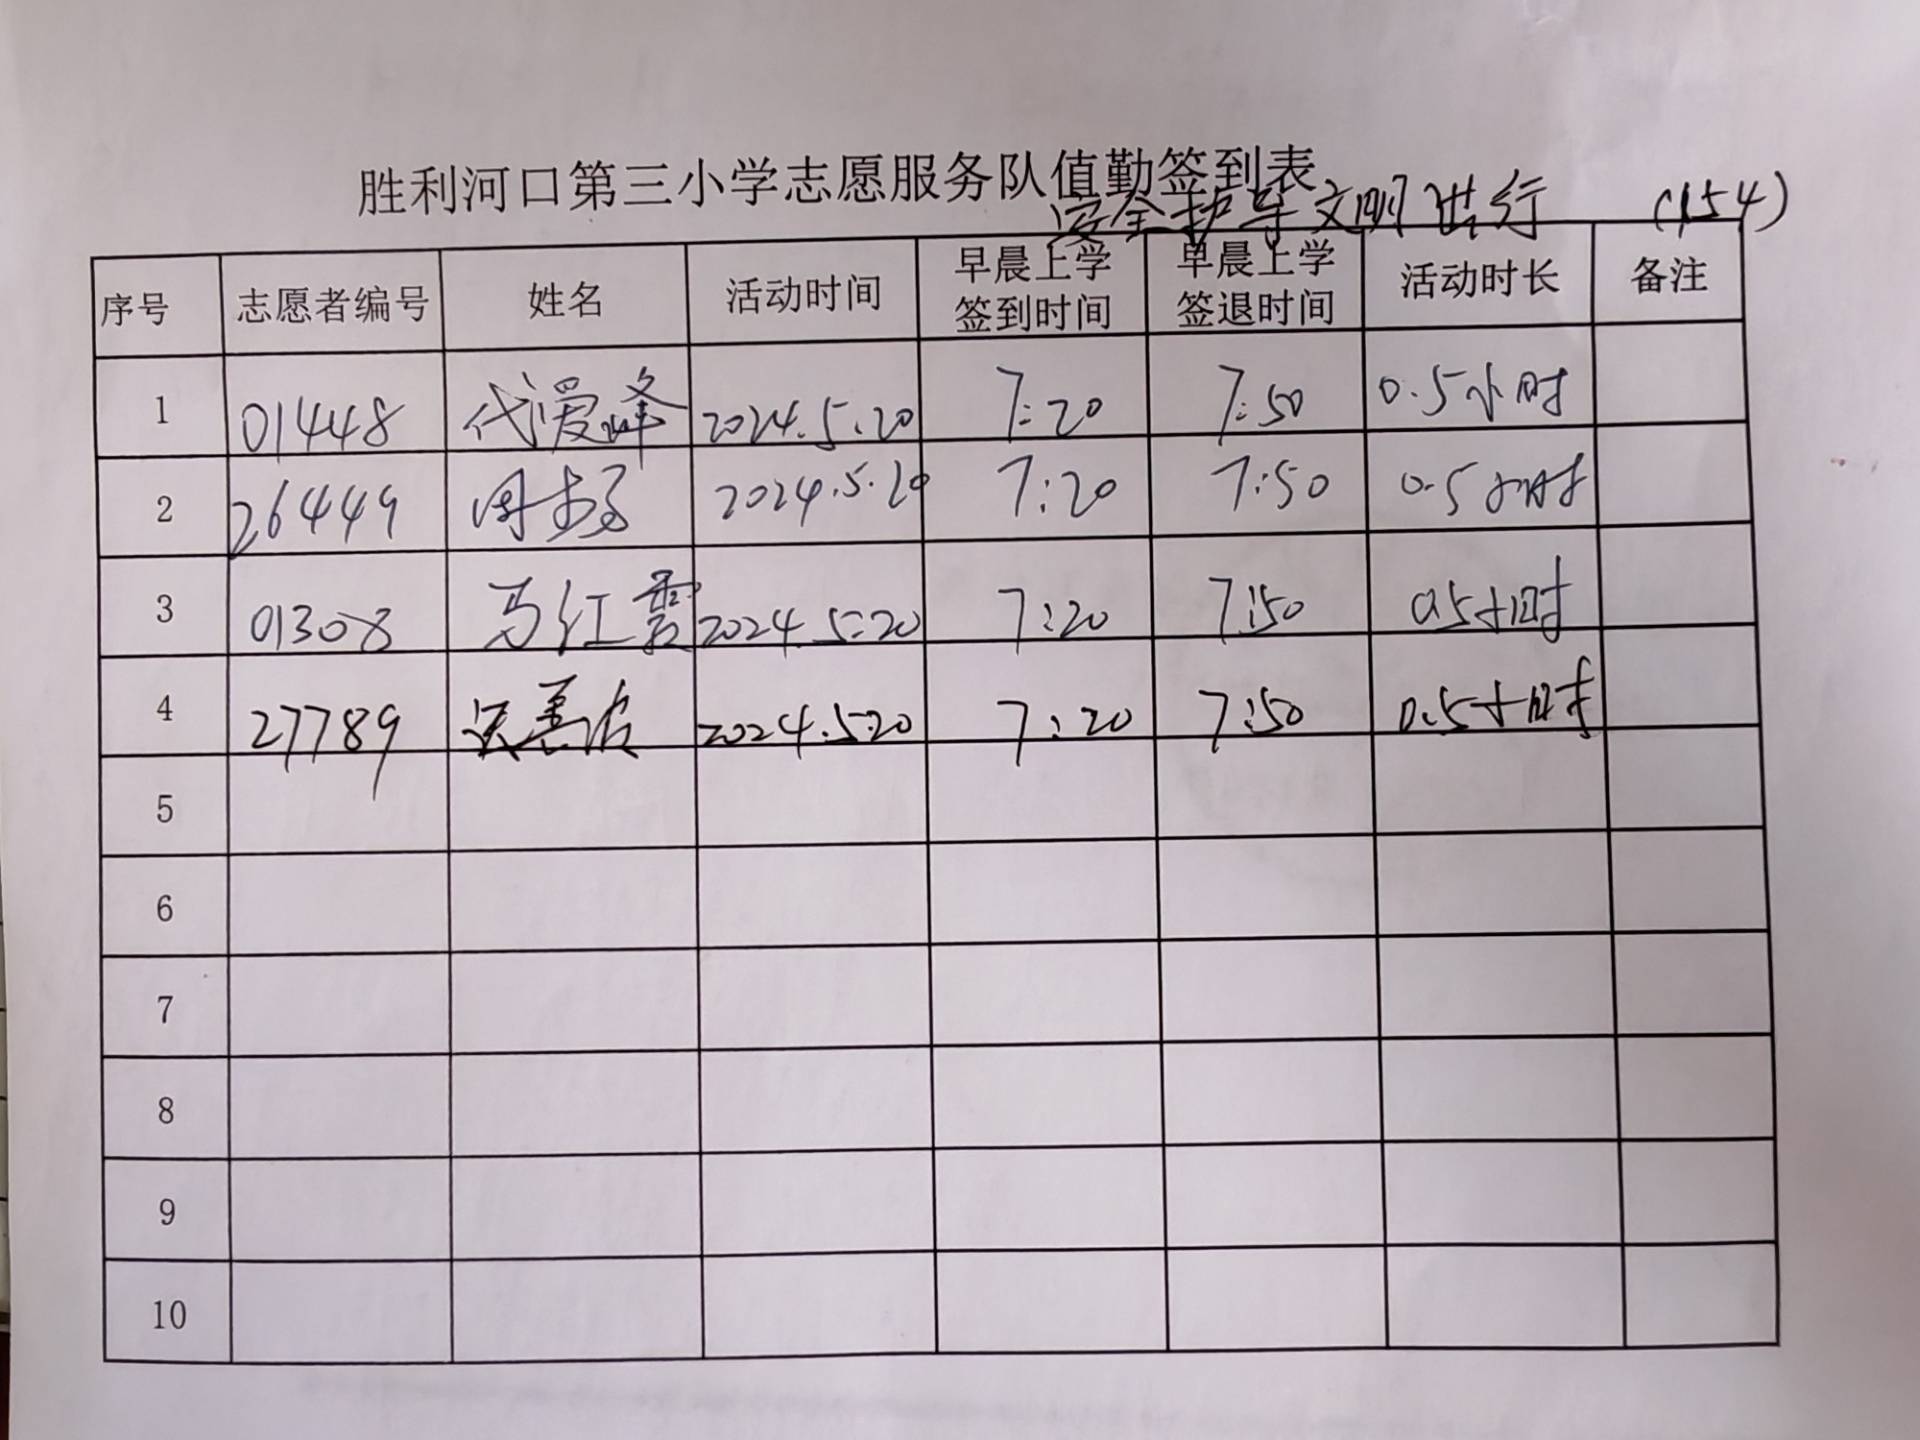 胜利河口第三小学志愿服务队值勤签到表
安全护导 文明出行 (154)
序号 志愿者编号 姓名 活动时间 早晨上学签到时间 早晨上学签退时间 活动时长 备注
1 01448 代爱峰 2024.5.20 7:20 7:50 0.5小时
2 26449 2024.5.20 7:20 7:50 0.5小时
3 01308 马红霞 2024.5.20 7:20 7:50 0.5小时
4 27789 2024.5.20 7:20 7:50 0.5小时
5
6
7
8
9
10